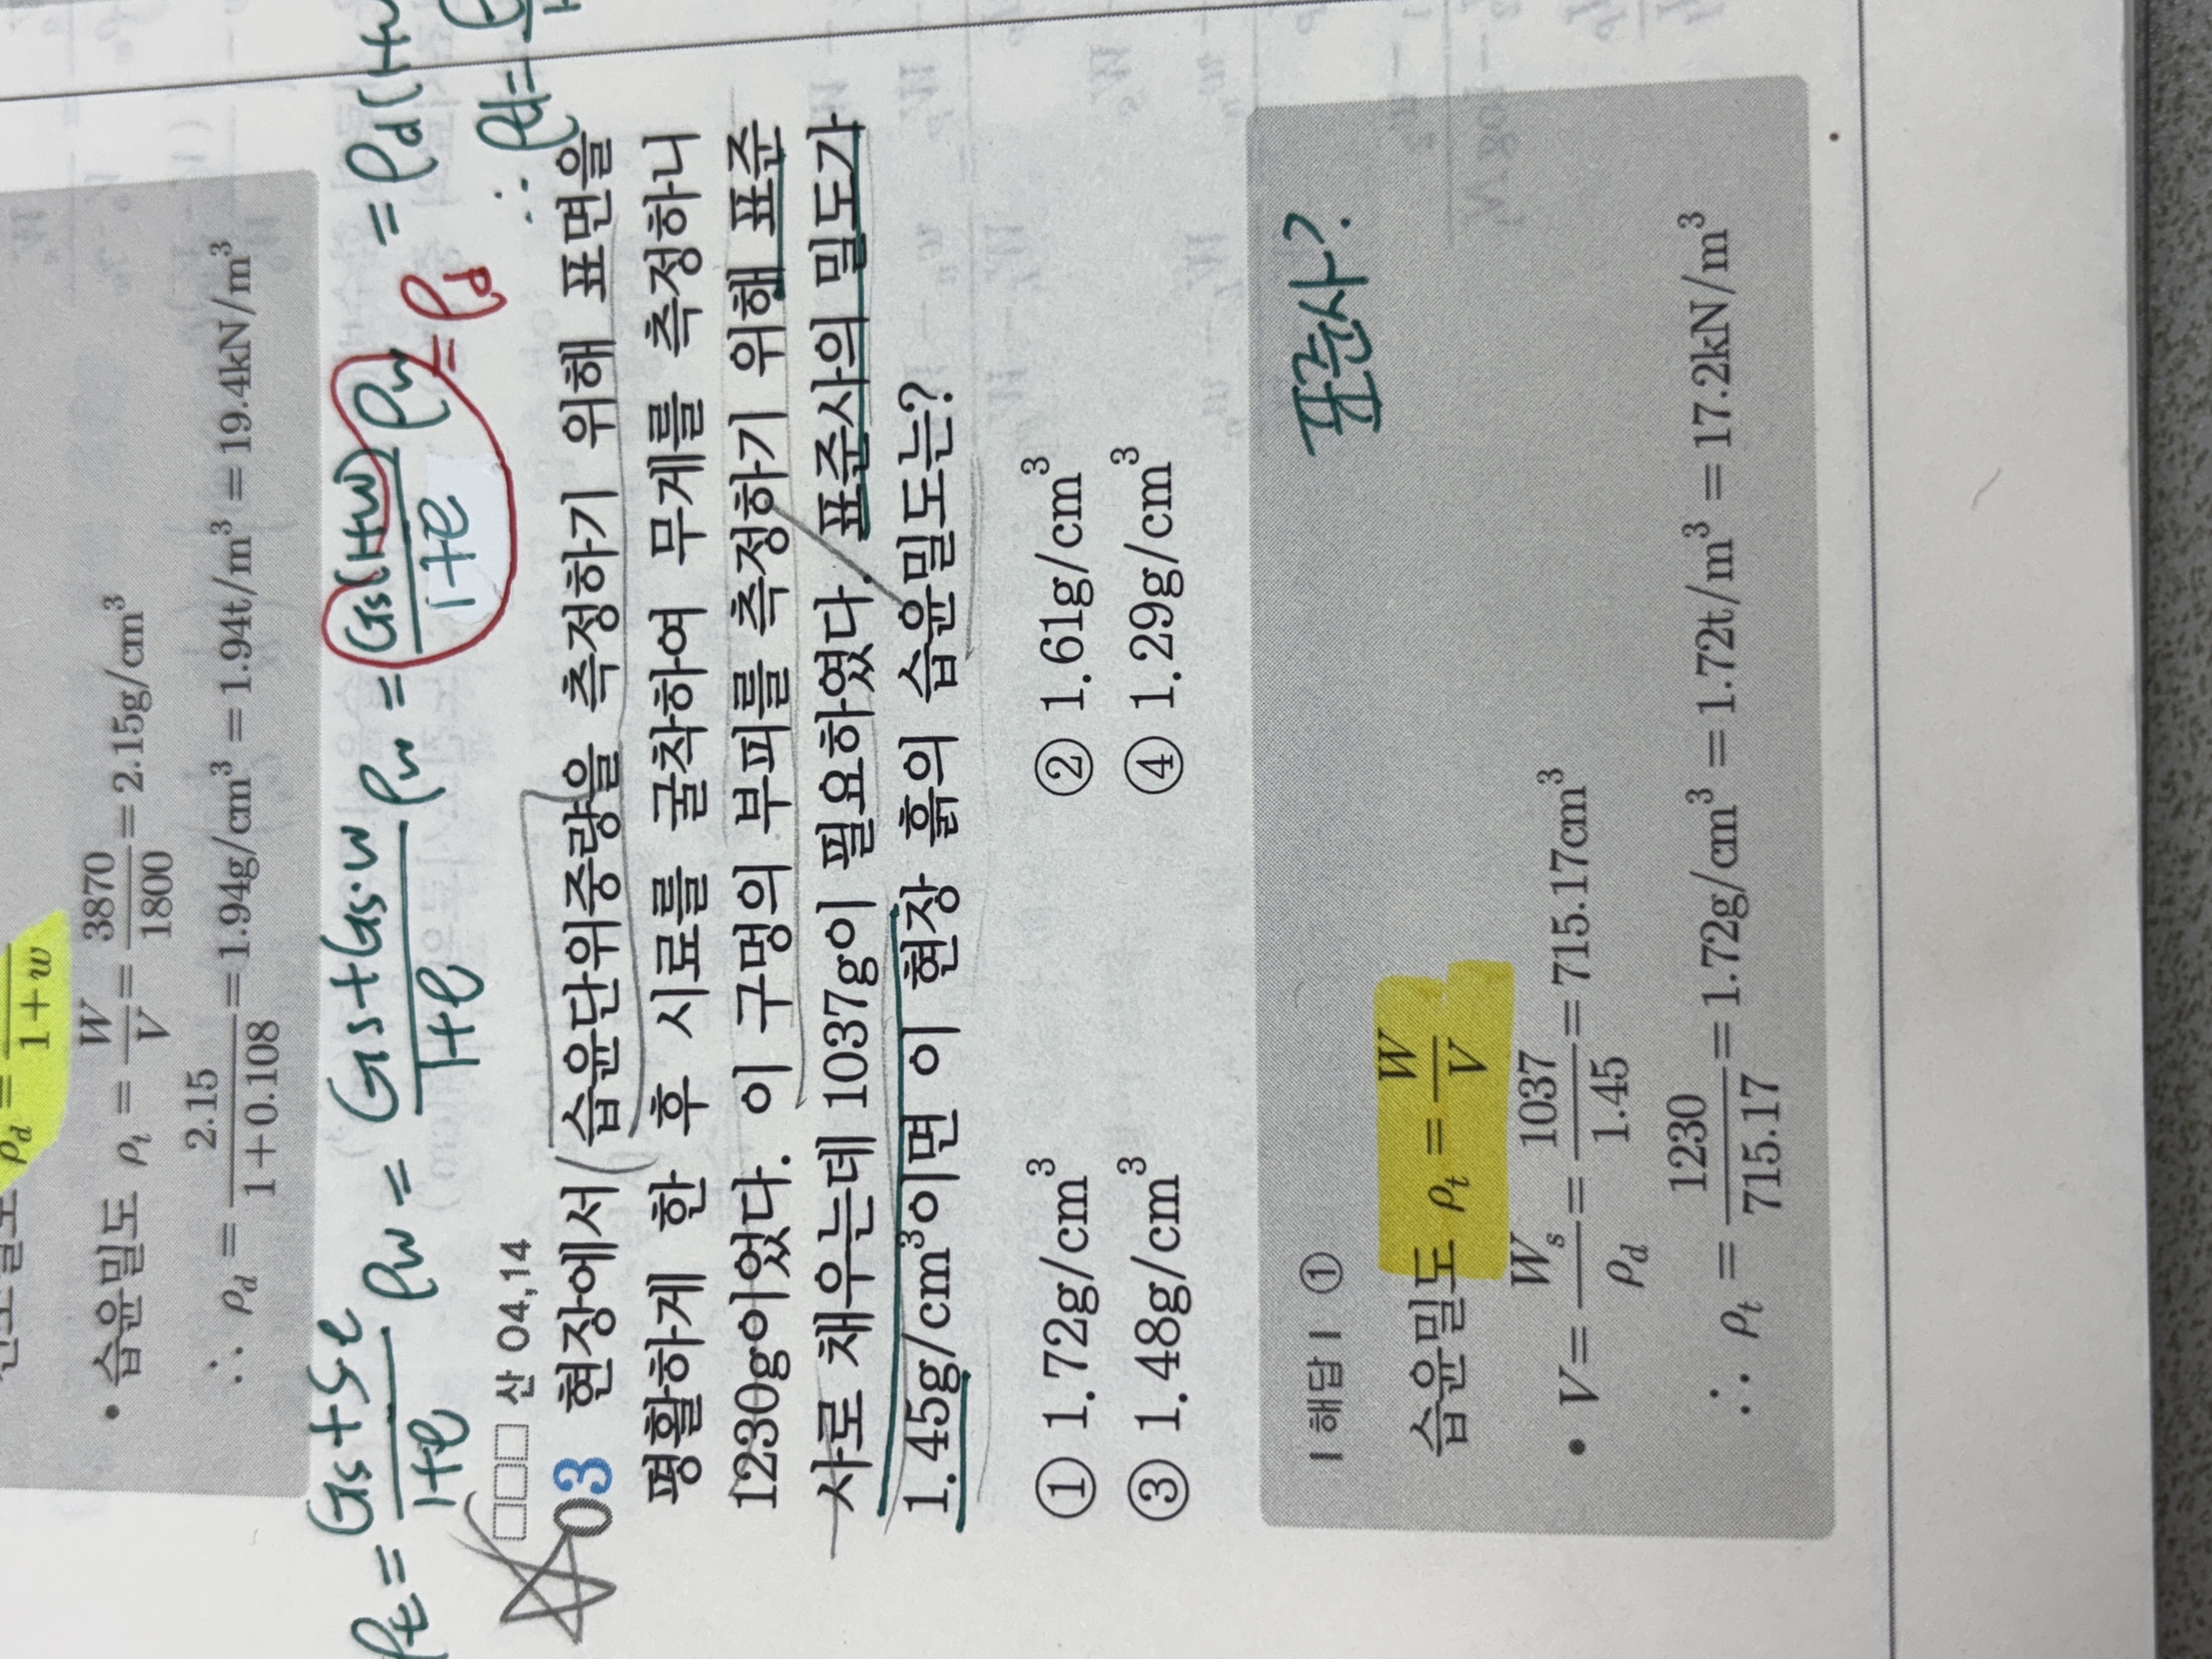 ρd = 1+w
• 습윤밀도 ρt = W/V = 3870/1800 = 2.15g/cm³
∴ ρd = 2.15/(1+0.108) = 1.94g/cm³ = 1.94t/m³ = 19.4kN/m³
ρt = (Gs+Se)/(1+e) ρw = (Gs+Gs·w)/(1+e) ρw = Gs(1+w)/(1+e) ρw = ρd(1+w
= ρd
∴ ρd =
산 04,14
03 현장에서 습윤단위중량을 측정하기 위해 표면을
평활하게 한 후 시료를 굴착하여 무게를 측정하니
1230g이었다. 이 구멍의 부피를 측정하기 위해 표준
사로 채우는데 1037g이 필요하였다. 표준사의 밀도가
1.45g/cm³이면 이 현장 흙의 습윤밀도는?
① 1.72g/cm³ ② 1.61g/cm³
③ 1.48g/cm³ ④ 1.29g/cm³
| 해답 | ①
표준사?
습윤밀도 ρt = W/V
• V = Ws/ρd = 1037/1.45 = 715.17cm³
∴ ρt = 1230/715.17 = 1.72g/cm³ = 1.72t/m³ = 17.2kN/m³